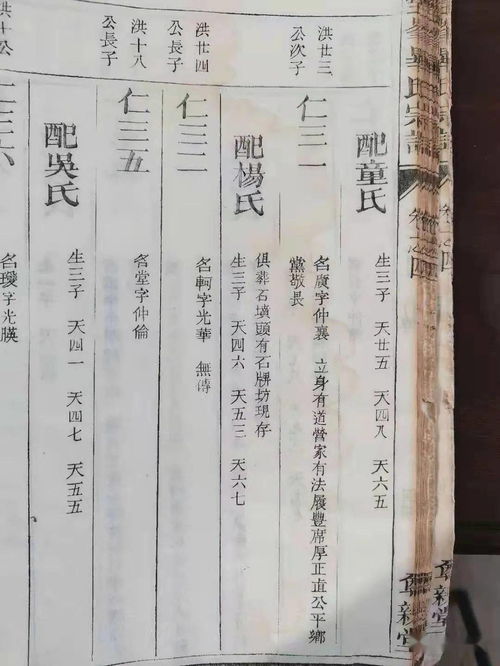 氏宗譜
配童氏
生三子 天廿五 天四八 天六五
洪廿三
公次子
仁三一
名廣字仲襄 立身有道營家有法履豐席厚正直公平鄉
黨敬長
配楊氏
俱葬石墳頭有石牌坊現存
生三子 天四六 天五三 天六七
洪廿四
公長子
仁三二
名軻字光華 無傳
洪十八
公長子
仁三五
名堂字仲倫
配吳氏
生三子 天四一 天四七 天五五
洪十公
仁三六
名璦字光膜
新堂
新堂